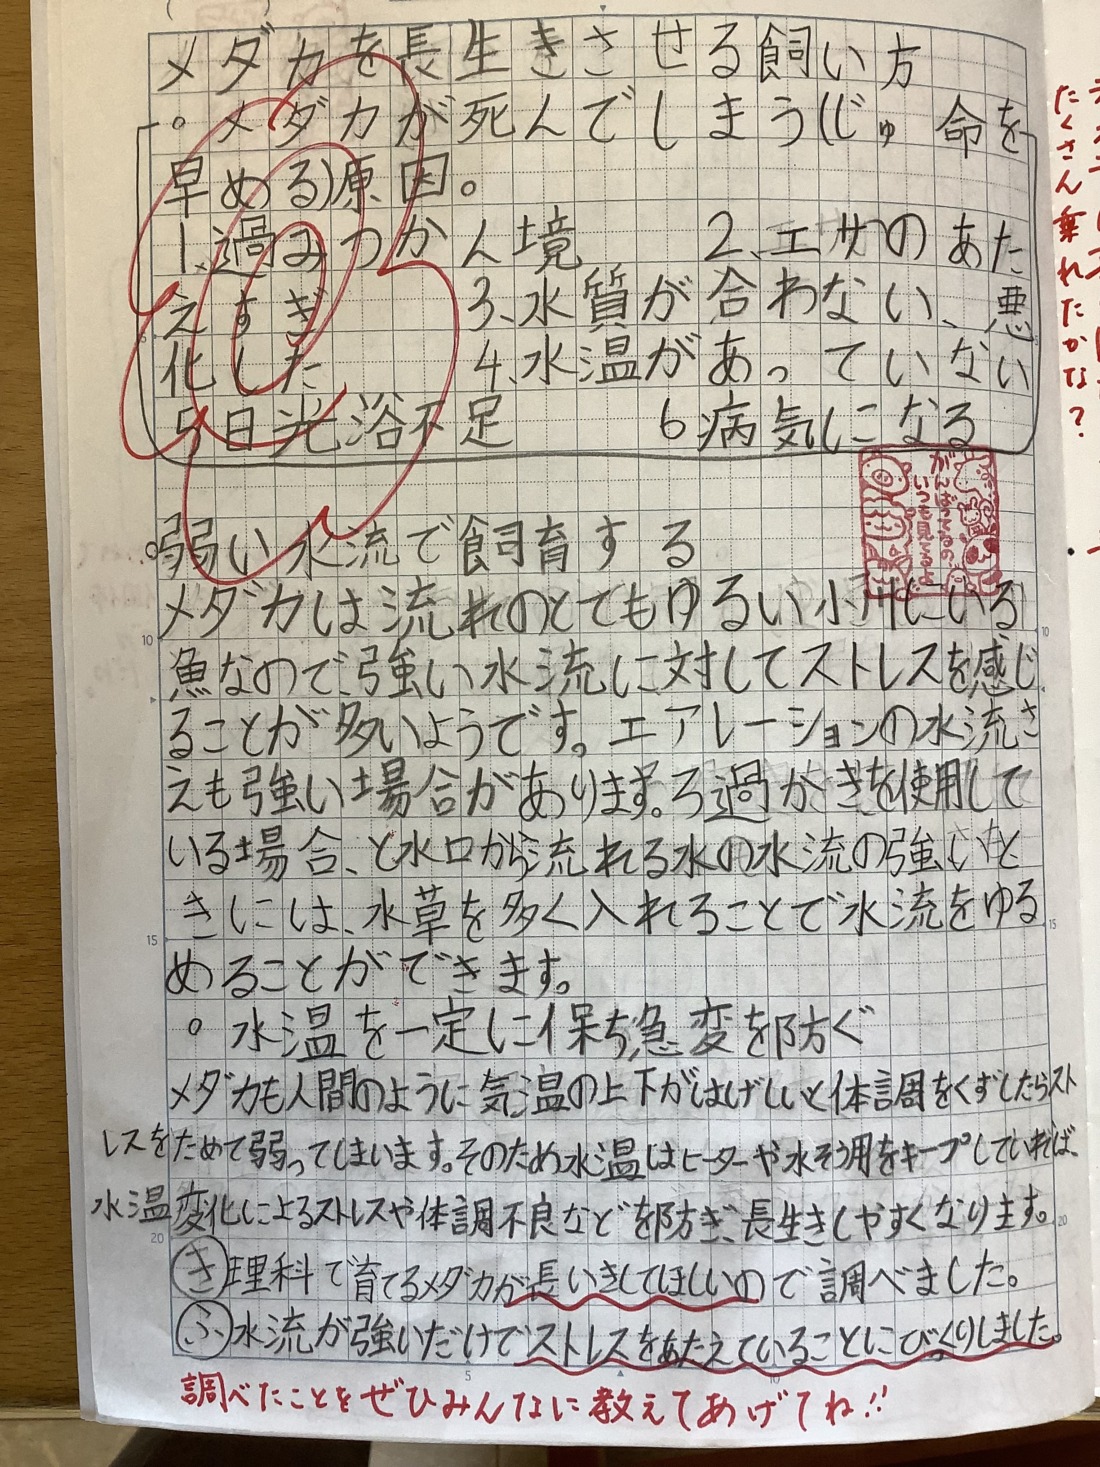 メダカを長生きさせる飼い方
。メダカが死んでしまう(じゅ命を
早める)原因。
1、過みつか人境 2、エサのあた
えすぎ 3、水質が合わない、悪
化した 4、水温があっていない
5日光浴不足 6病気になる
がんばってるの
いつも見てるよ
。弱い水流で飼育する
メダカは流れのとてもゆるい小川にいる
魚なので、強い水流に対してストレスを感じ
ることが多いようです。エアレーションの水流さ
えも強い場合があります。ろ過かぎを使用して
いる場合、と水口から流れる水の水流の強いと
きにには、水草を多く入れることで水流をゆる
めることができます。
。水温を一定に保ち急変を防ぐ
メダカも人間のように気温の上下がはげしいと体調をくずしたらスト
レスをためて弱ってしまいます。そのため水温はヒーターや水そう用をキープしていれば、
水温変化によるストレスや体調不良などを防ぎ、長生きしやすくなります。
き理科で育てるメダカが長いきしてほしいので調べました。
ふ水流が強いだけでストレスをあたえていることにびっくりしました。
調べたことをぜひみんなに教えてあげてね!!
たくさん乗れたかな?
10
15
20
5
10
10
15
20